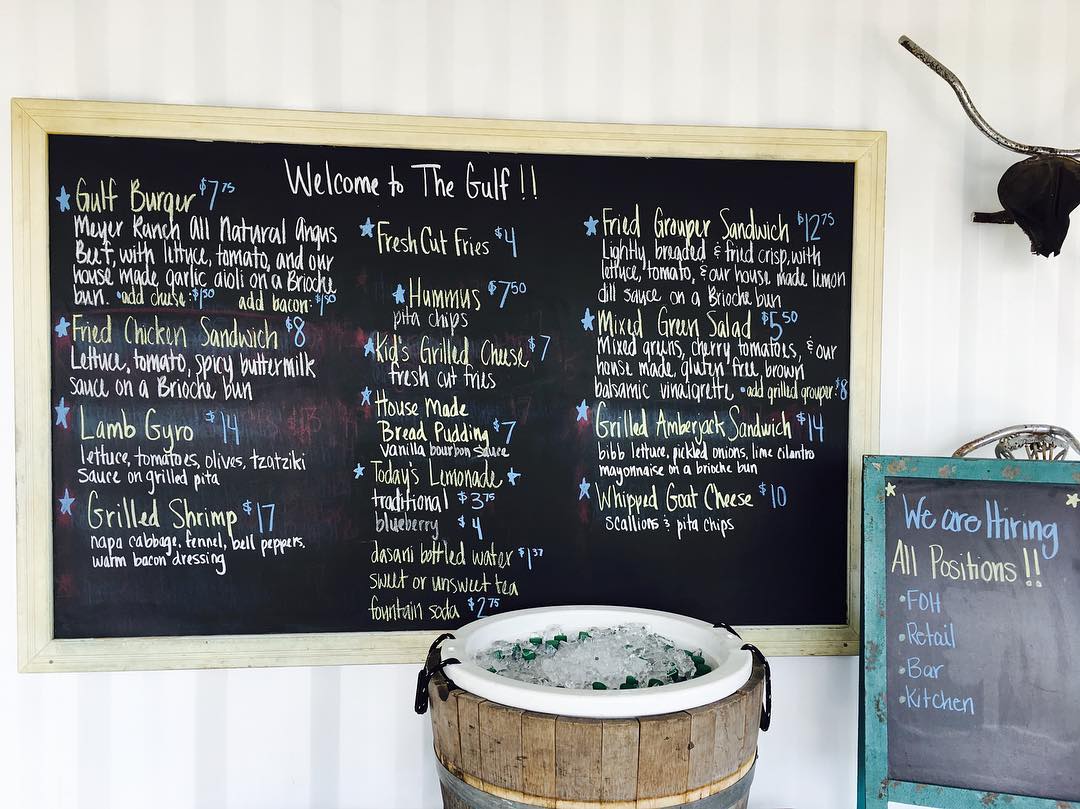 Welcome to The Gulf!!
Gulf Burger $7.75
Meyer Ranch All Natural Angus
Beef, with lettuce, tomato, and our
house made garlic aioli on a Brioche
bun. •add cheese: $1.50 add bacon: $1.50
Fried Chicken Sandwich $8
Lettuce, tomato, spicy buttermilk
sauce on a Brioche bun
Lamb Gyro $14
lettuce, tomatoes, olives, tzatziki
sauce on grilled pita
Grilled Shrimp $17
napa cabbage, fennel, bell peppers,
warm bacon dressing
Fresh Cut Fries $4
Hummus $7.50
pita chips
Kid's Grilled Cheese $7
fresh cut fries
House Made
Bread Pudding $7
vanilla bourbon sauce
Today's Lemonade
traditional $3.75
blueberry $4
dasani bottled water $1.37
sweet or unsweet tea
fountain soda $2.75
Fried Grouper Sandwich $12.75
Lightly breaded & fried crisp, with
lettuce, tomato, & our house made lemon
dill sauce on a Brioche bun
Mixed Green Salad $5.50
Mixed greens, cherry tomatoes, & our
house made, gluten free, brown
balsamic vinaigrette •add grilled grouper: $8
Grilled Amberjack Sandwich $14
bibb lettuce, pickled onions, lime cilantro
mayonnaise on a brioche bun
Whipped Goat Cheese $10
scallions & pita chips
We are Hiring
All Positions!!
•FOH
•Retail
•Bar
•Kitchen